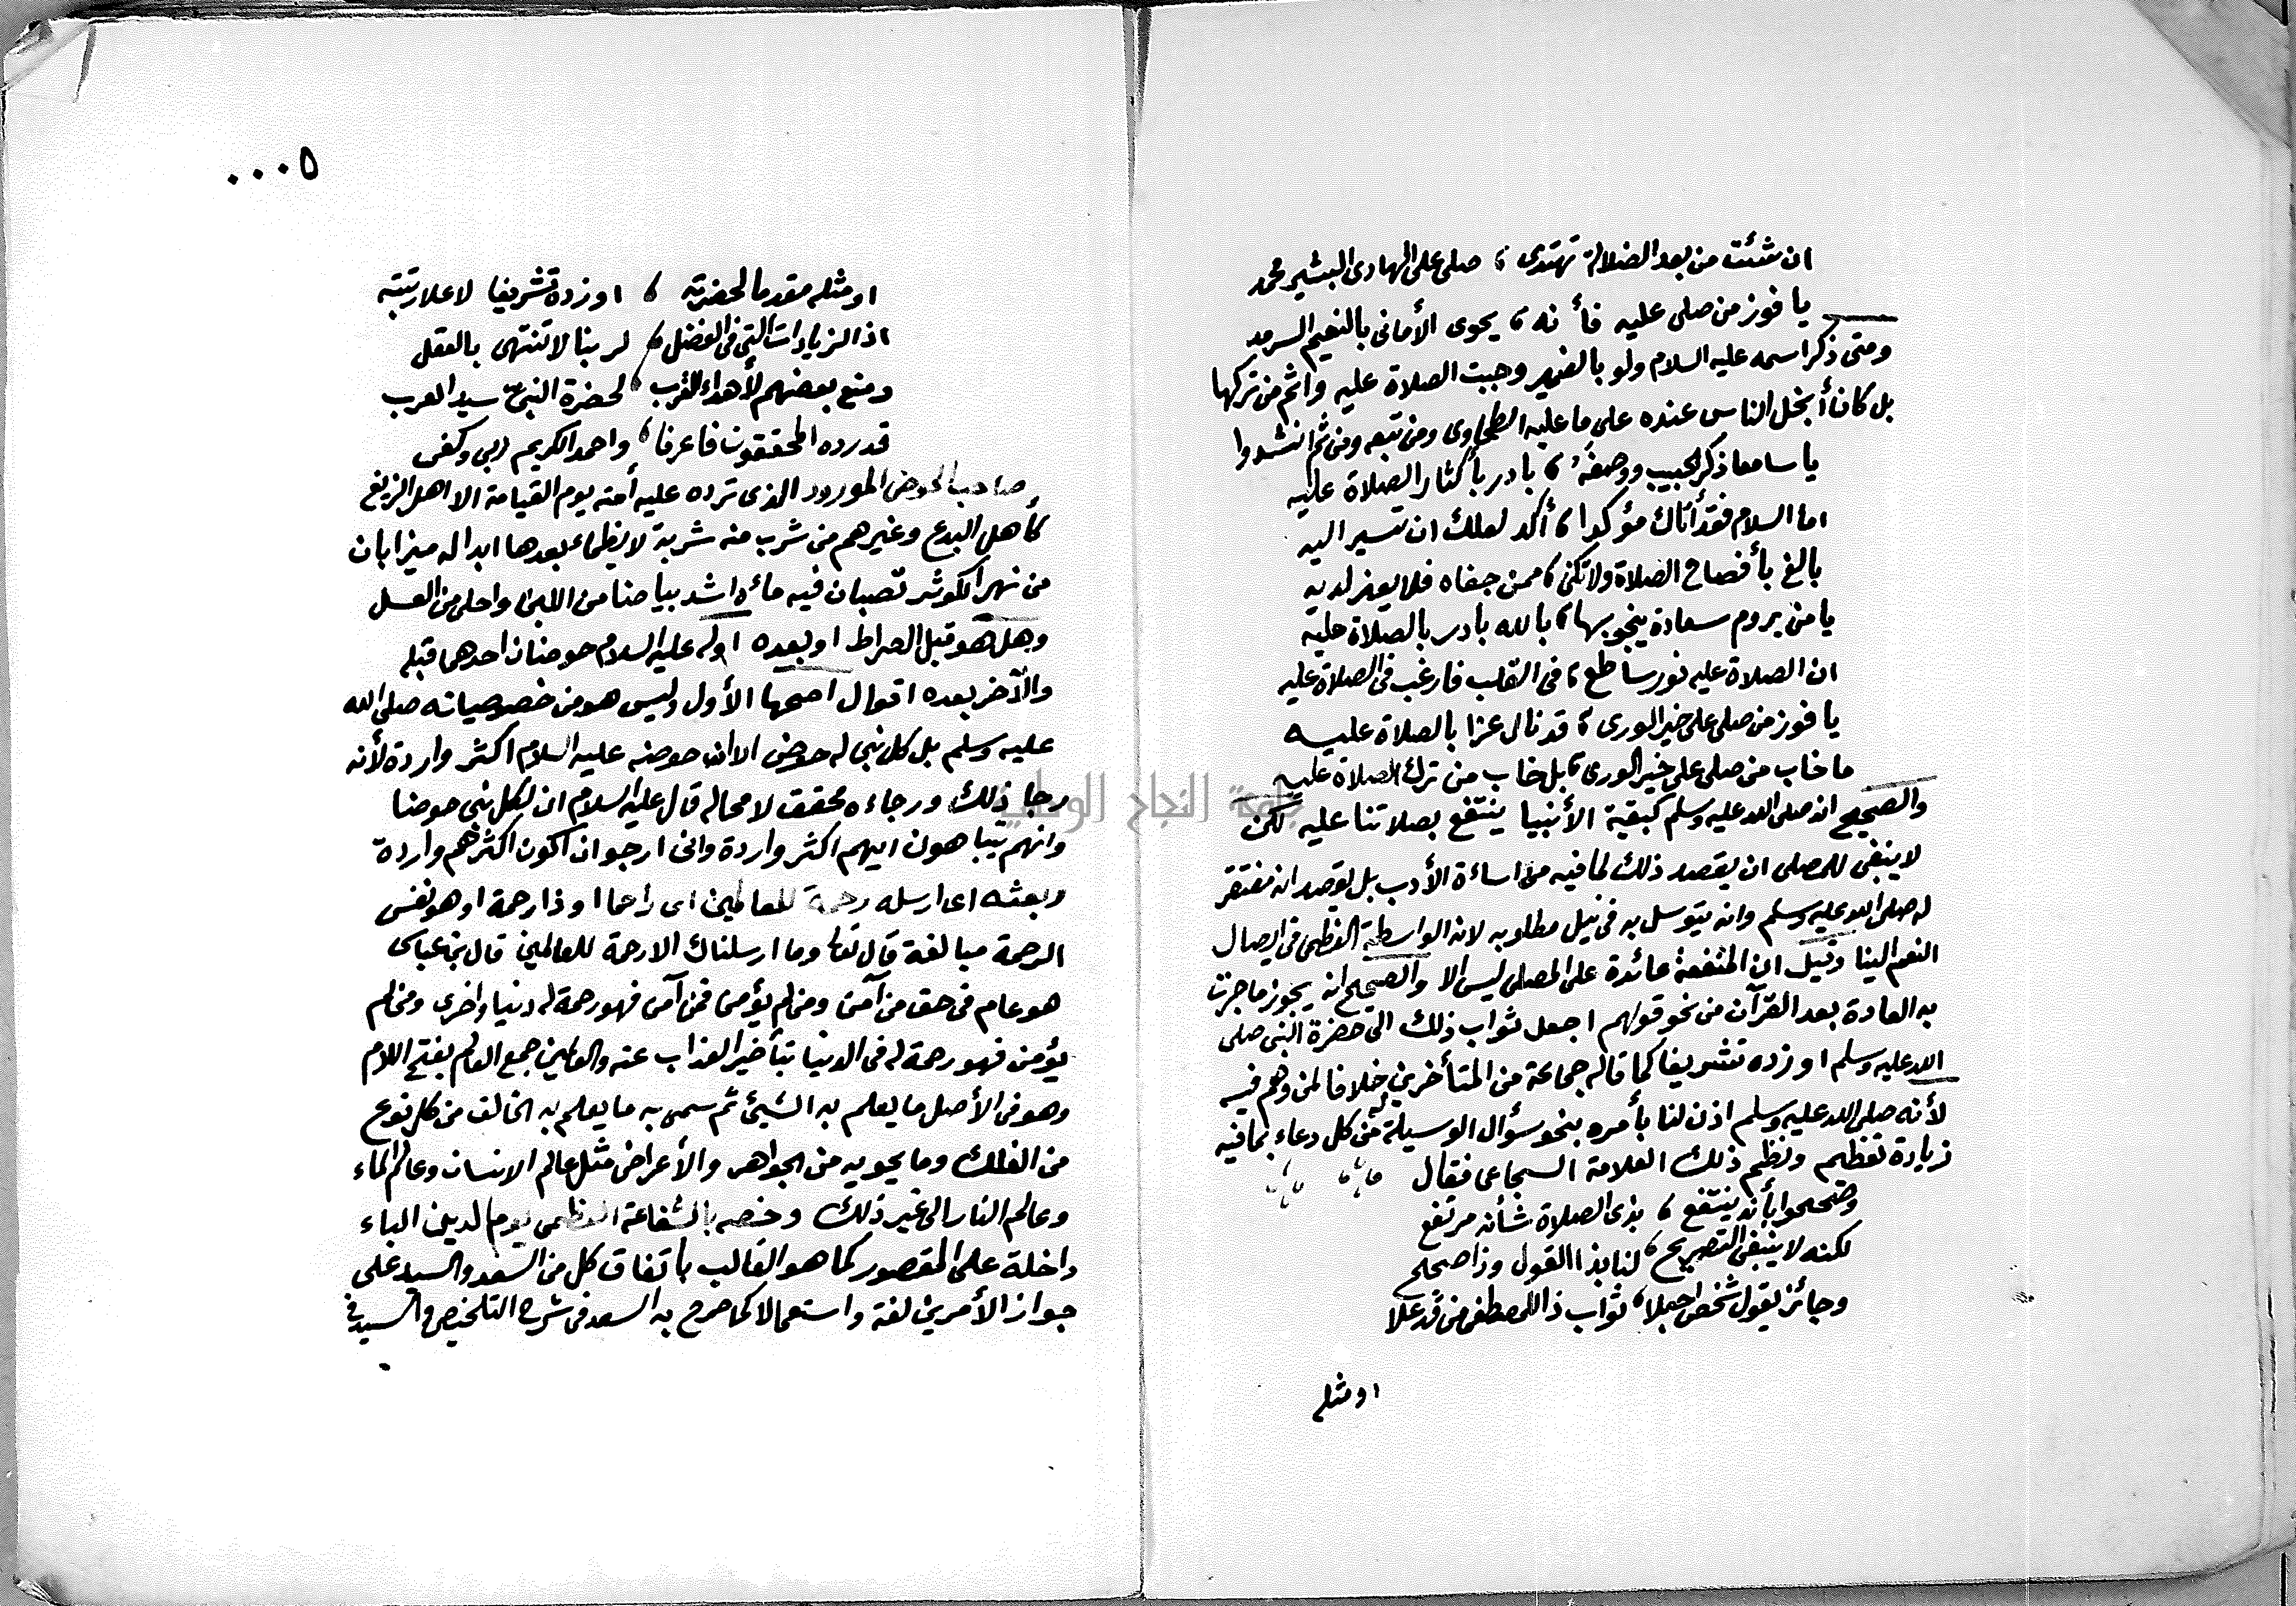 ان شئت من بعد الضلالة تهتدى ، صلى على الهادى البشير محمد
يا فوز من صلى عليه فأنه ، يحوى الأمانى بالنعيم السرمد
ومتى ذكر اسمه عليه السلام ولو بالضمير وجبت الصلاة عليه واثم من تركها
بل كان أبخل الناس عنده على ما عليه الطحاوى ومن تبعه ومن ثم انشدوا
يا سامعا ذكر الحبيب ووصفه ، بادر بأكثار الصلاة عليه
اما السلام فقد أتاك مؤكدا ، أكد لعلك ان تسير اليه
بالغ بأفصاح الصلاة ولا تكن ، ممن جفاه فلا يعز لديه
يا من يروم سعادة ينجو بها ، بالله بادر بالصلاة عليه
ان الصلاة عليه نور ساطع ، فى القلب فارغب فى الصلاة عليه
يا فوز من صلى على خير الورى ، قد نال عزا بالصلاة عليه
ما خاب من صلى على خير الورى ، بل خاب من ترك الصلاة عليه
والصحيح انه صلى الله عليه وسلم كبقية الأنبيا ينتفع بصلاتنا عليه لكن
لا ينبغى للمصلى ان يقصد ذلك لما فيه من اساءة الأدب بل يقصد انه مفتقر
له صلى الله عليه وسلم وانه يتوسل به فى نيل مطلوبه لانه الواسطة العظمى فى ايصال
النعم الينا وقيل ان المنفعة عائدة على المصلى ليس الا والصحيح انه يجوز ما جرت
به العادة بعد القرآن من نحو قولهم اجعل ثواب ذلك الى حضرة النبى صلى
الله عليه وسلم او زده تشريفا كما قاله جماعة من المتأخرين خلافا لمن وهم فيه
لأنه صلى الله عليه وسلم اذن لنا بأمره بنحو سؤال الوسيلة له من كل دعاء بما فيه
زيادة تعظيم ونظم ذلك العلامة السجاعى فقال
وصححوا بأنه ينتفع ، بذى الصلاة شأنه مرتفع
لكنه لا ينبغى التصريح ، لنا بذا القول وذا صحيح
وجائز يقول شخص اجعلا ، ثواب ذا للمصطفى من قد علا
او مثله
٠٠٠٥
او مثله مقدما لحضرته ، او زده تشريفا لاعلا رتبته
اذ الزيادات التى فى الفضل ، لربنا لا تنتهى بالعقل
ومنع بعضهم لأهداء القرب ، لحضرة النبى سيد العرب
قد رده المحققون فاعرفا ، واحمد الكريم ربى وكفى
صاحب الحوض المورود الذى ترده عليه أمته يوم القيامة الا اهل الزيغ
كأهل البدع وغيرهم من شرب منه شربة لا يظماء بعدها ابدا له ميزابان
من نهر الكوثر تصبان فيه مائه اشد بياضا من اللبن واحلى من العسل
وهل هو قبل الصراط او بعده اوله عليه السلام حوضان احدهما قبله
والآخر بعده اقوال اصحها الأول وليس هو من خصوصياته صلى الله
عليه وسلم بل كل نبى له حوض الا ان حوضه عليه السلام اكثر واردة لأنه
رجا ذلك ورجاءه محقق لا محاله قال عليه السلام ان لكل نبى حوضا
وانهم يتباهون ايهم اكثر واردة وانى ارجو ان اكون اكثرهم واردة
وبعثه اى ارسله رحمة للعالمين اى راحما او ذا رحمة او هو نفس
الرحمة مبالغة قال تعا وما ارسلناك الا رحمة للعالمين قال بن عباس
هو عام فى حق من آمن ومن لم يؤمن فمن آمن فهو رحمة له دنيا واخرى ومن لم
يؤمن فهو رحمة له فى الدنيا بتأخير العذاب عنه والعالمين جمع العالم بفتح اللام
وهو فى الأصل ما يعلم به الشيئ ثم سمى به ما يعلم به الخالق من كل نوع
من الفلك وما يحويه من الجواهر والأعراض مثل عالم الانسان وعالم الماء
وعالم النار الى غير ذلك وخصه بالشفاعة العظمى يوم الدين الباء
داخلة على المقصور كما هو الغالب بأتفاق كل من السعد والسيد على
جواز الأمرين لغة واستعمالا كما صرح به السعد فى شرح التلخيص والسيد فى
جامعة النجاح الوطنية